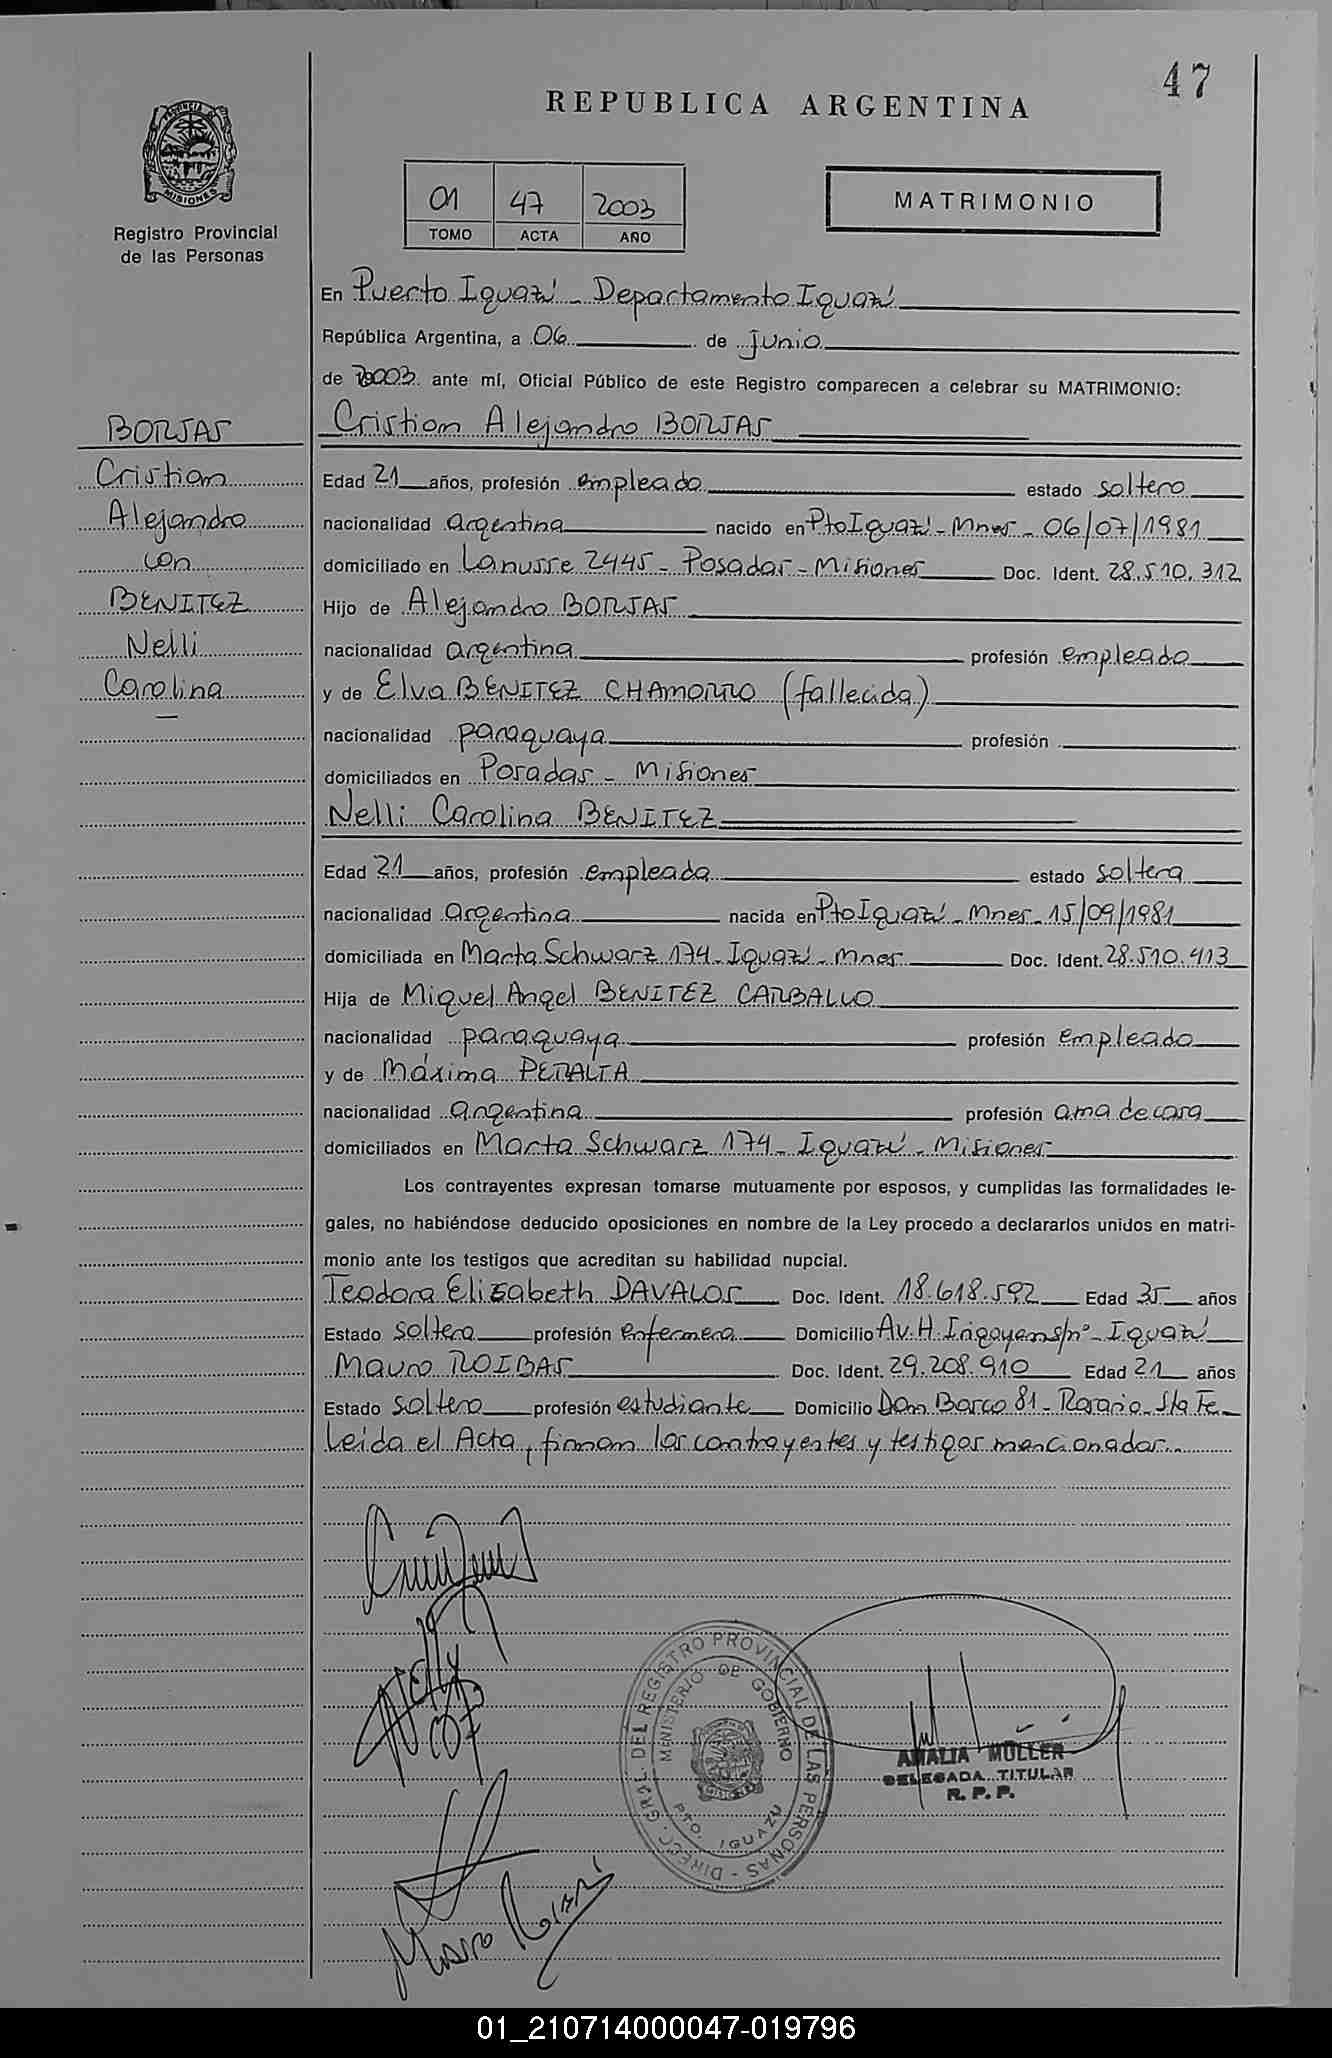 47
REPUBLICA ARGENTINA
PROVINCIA DE MISIONES
Registro Provincial
de las Personas
01 47 2003
TOMO ACTA AÑO
MATRIMONIO
En Puerto Iguazú - Departamento Iguazú
República Argentina, a 06 de junio
de 2003 ante mí, Oficial Público de este Registro comparecen a celebrar su MATRIMONIO:
BORJAS
Cristian
Alejandro
con
BENITEZ
Nelli
Carolina
Cristian Alejandro BORJAS
Edad 21 años, profesión empleado estado soltero
nacionalidad argentina nacido en Pto Iguazú - Mnes - 06/07/1981
domiciliado en Lanusse 2445 - Posadas - Misiones Doc. Ident. 28.510.312
Hijo de Alejandro BORJAS
nacionalidad argentina profesión empleado
y de Elva BENITEZ CHAMORRO (fallecida)
nacionalidad paraguaya profesión
domiciliados en Posadas - Misiones
Nelli Carolina BENITEZ
Edad 21 años, profesión empleada estado soltera
nacionalidad argentina nacida en Pto Iguazú - Mnes - 15/09/1981
domiciliada en Marta Schwarz 174 - Iguazú - Mnes Doc. Ident. 28.510.413
Hija de Miguel Angel BENITEZ CARBALLO
nacionalidad paraguaya profesión empleado
y de Máxima PERALTA
nacionalidad argentina profesión ama de casa
domiciliados en Marta Schwarz 174 - Iguazú - Misiones
Los contrayentes expresan tomarse mutuamente por esposos, y cumplidas las formalidades le-
gales, no habiéndose deducido oposiciones en nombre de la Ley procedo a declararlos unidos en matri-
monio ante los testigos que acreditan su habilidad nupcial.
Teodora Elizabeth DAVALOS Doc. Ident. 18.618.592 Edad 35 años
Estado soltera profesión enfermera Domicilio Av. H. Irigoyen s/nº - Iguazú
Mauro ROIBAS Doc. Ident. 29.208.910 Edad 21 años
Estado soltero profesión estudiante Domicilio Dam Barco 81 - Rosario - Sta Fe -
Leida el Acta, firman los contrayentes y testigos mencionados..
DIREC. GRAL. DEL REGISTRO PROVINCIAL DE LAS PERSONAS -
MINISTERIO DE GOBIERNO
PTO. IGUAZU
AMALIA MÜLLER
DELEGADA TITULAR
R. P. P.
Mauro
01_210714000047-019796